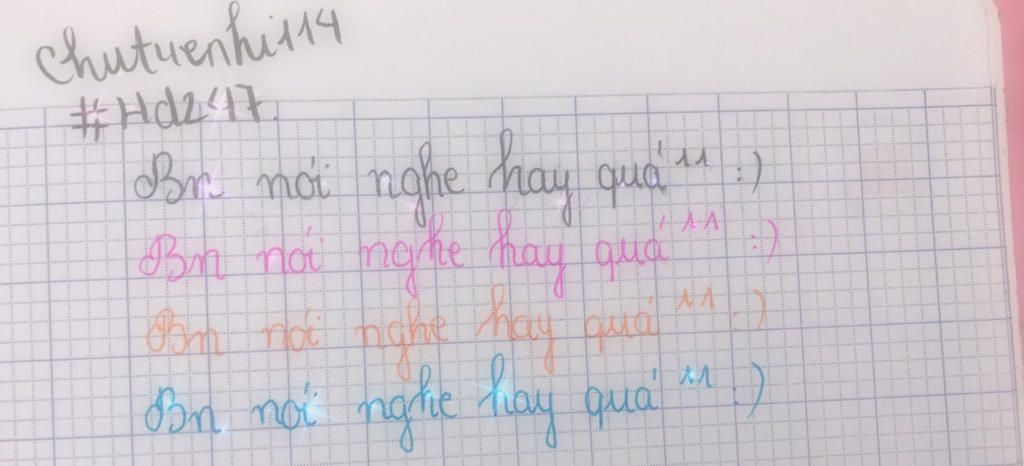 chutuenhi114
#Hdz247.
Bn nói nghe hay quá ^^ :)
Bn nói nghe hay quá ^^ :)
Bn nói nghe hay quá ^^ :)
Bn nói nghe hay quá ^^ :)